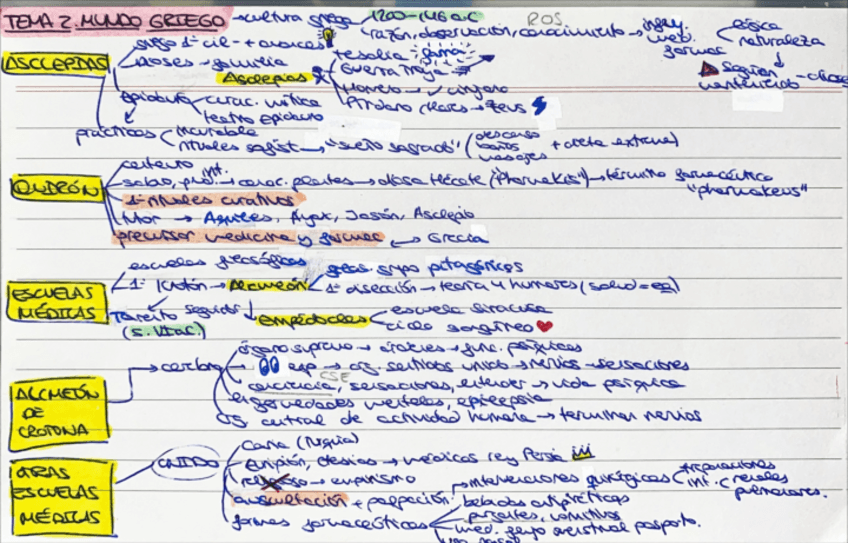 TEMA 2. MUNDO GRIEGO → cultura griega 1200-146 a.C ROS
razón, observación, conocimiento → ingen. med. farmac
lógica
naturaleza
ASCLEPIAS
griego 1ª civ. + avances
dioses - familia
Asclepios
tesalia
Guerra Troya
Homero →
Píndaro → Zeus
Epidauro curac. mítica
teatro epidauro
prácticas incurable
rituales → "sueño sagrado" (descanso baños masajes + dieta extrema)
QUIRÓN
centauro
sabio, int. → conoc. plantas → diosa Hécate ("Pharmakis") → término farmacéutico "pharmakeus"
1º rituales curativos
tutor → Aquiles, Ayax, Jasón, Asclepio
precursor medicina y farmac → Grecia
ESCUELAS MÉDICAS
escuelas filosóficas
1ª Crotón → Alcmeón
filos. grupo pitagóricos
1ª disección → teoría 4 humores (salud = eq)
Tarento
(s. VI a.C.)
seguidor
Empédocles
escuela siracusa
ciclo sanguíneo
ALCMEÓN DE CROTONA
→ cerebro
órgano supremo → func. psíquicas
esp → org. sentidos unido → nervios → sensaciones
CSE
conciencia, sensaciones, entender → vida psíquica
enfermedades mentales, epilepsia
org. central de actividad humana → terminan nervios
OTRAS ESCUELAS MÉDICAS
CNIDO
Caria (Turquía)
Eurifón, Ctesias → médicos rey Persa
→ empirismo
auscultación + palpación
intervenciones quirúrgicas
int. renales
pulmonares.
formas farmacéuticas
bebidas antipiréticas
purgantes, vomitivos
med. flujo menstrual posparto.